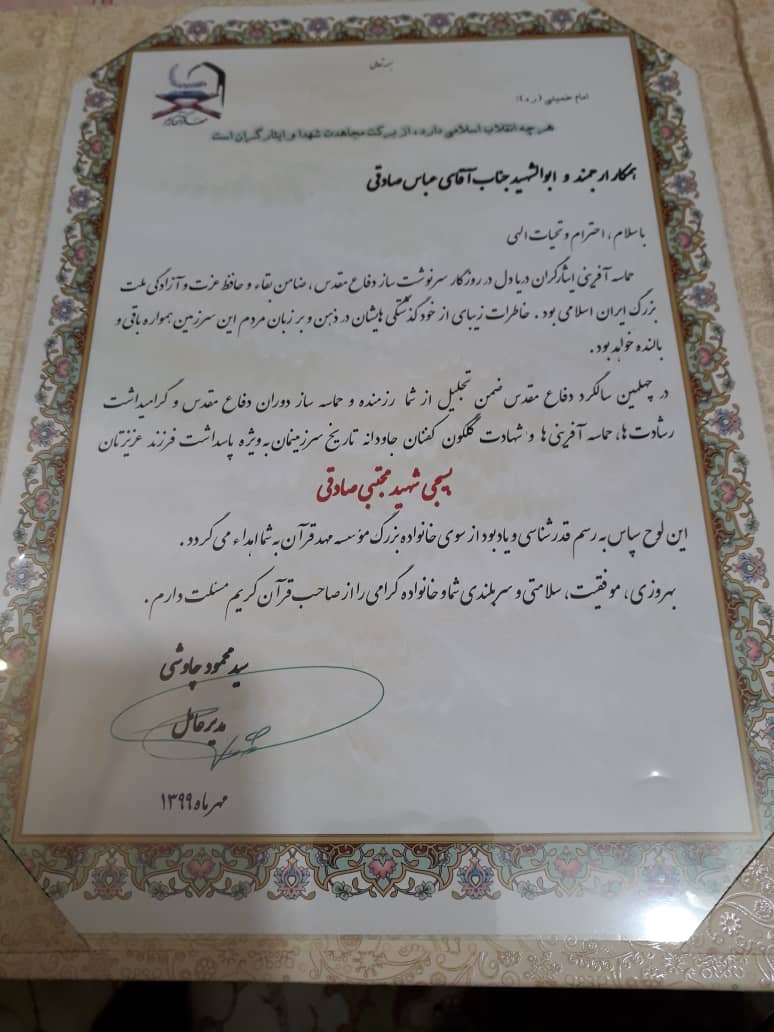 بسمه تعالی
امام خمینی (ره):
هر چه انقلاب اسلامی دارد، از برکت مجاهدت شهدا و ایثارگران است
همکار ارجمند و ابوالشهید جناب آقای عباس صادقی
با سلام، احترام و تحیات الهی
حماسه آفرینی ایثارگران دریا دل در روزگار سرنوشت ساز دفاع مقدس، ضامن بقاء و حافظ عزت و آزادگی ملت
بزرگ ایران اسلامی بود. خاطرات زیبای از خود گذشتگی هایشان در ذهن و بر زبان مردم این سرزمین همواره باقی و
بالنده خواهد بود.
در چهلمین سالگرد دفاع مقدس ضمن تجلیل از شما رزمنده و حماسه ساز دوران دفاع مقدس و گرامیداشت
رشادت ها، حماسه آفرینی ها و شهادت گلگون کفنان جاودانه تاریخ سرزمینمان به ویژه پاسداشت فرزند عزیزتان
بسیجی شهید مجتبی صادقی
این لوح سپاس به رسم قدرشناسی و یادبود از سوی خانواده بزرگ مؤسسه مهد قرآن به شما اهداء می گردد.
بهروزی، موفقیت، سلامتی و سربلندی شما و خانواده گرامی را از صاحب قرآن کریم مسئلت دارم.
سید محمود چاوشی
مدیرعامل
مهرماه ۱۳۹۹